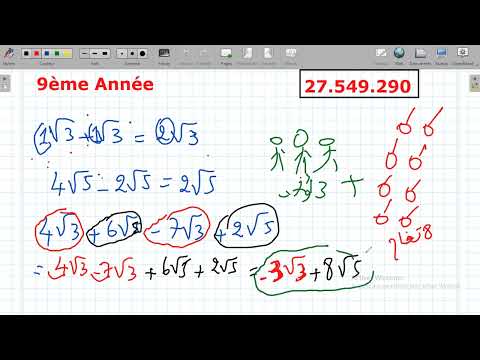 9ème Année
27.549.290
1√3 + 1√3 = 2√3
4√5 - 2√5 = 2√5
4√3 + 6√5 - 7√3 + 2√5
= 4√3 - 7√3 + 6√5 + 2√5 = -3√3 + 8√5
3 +
8